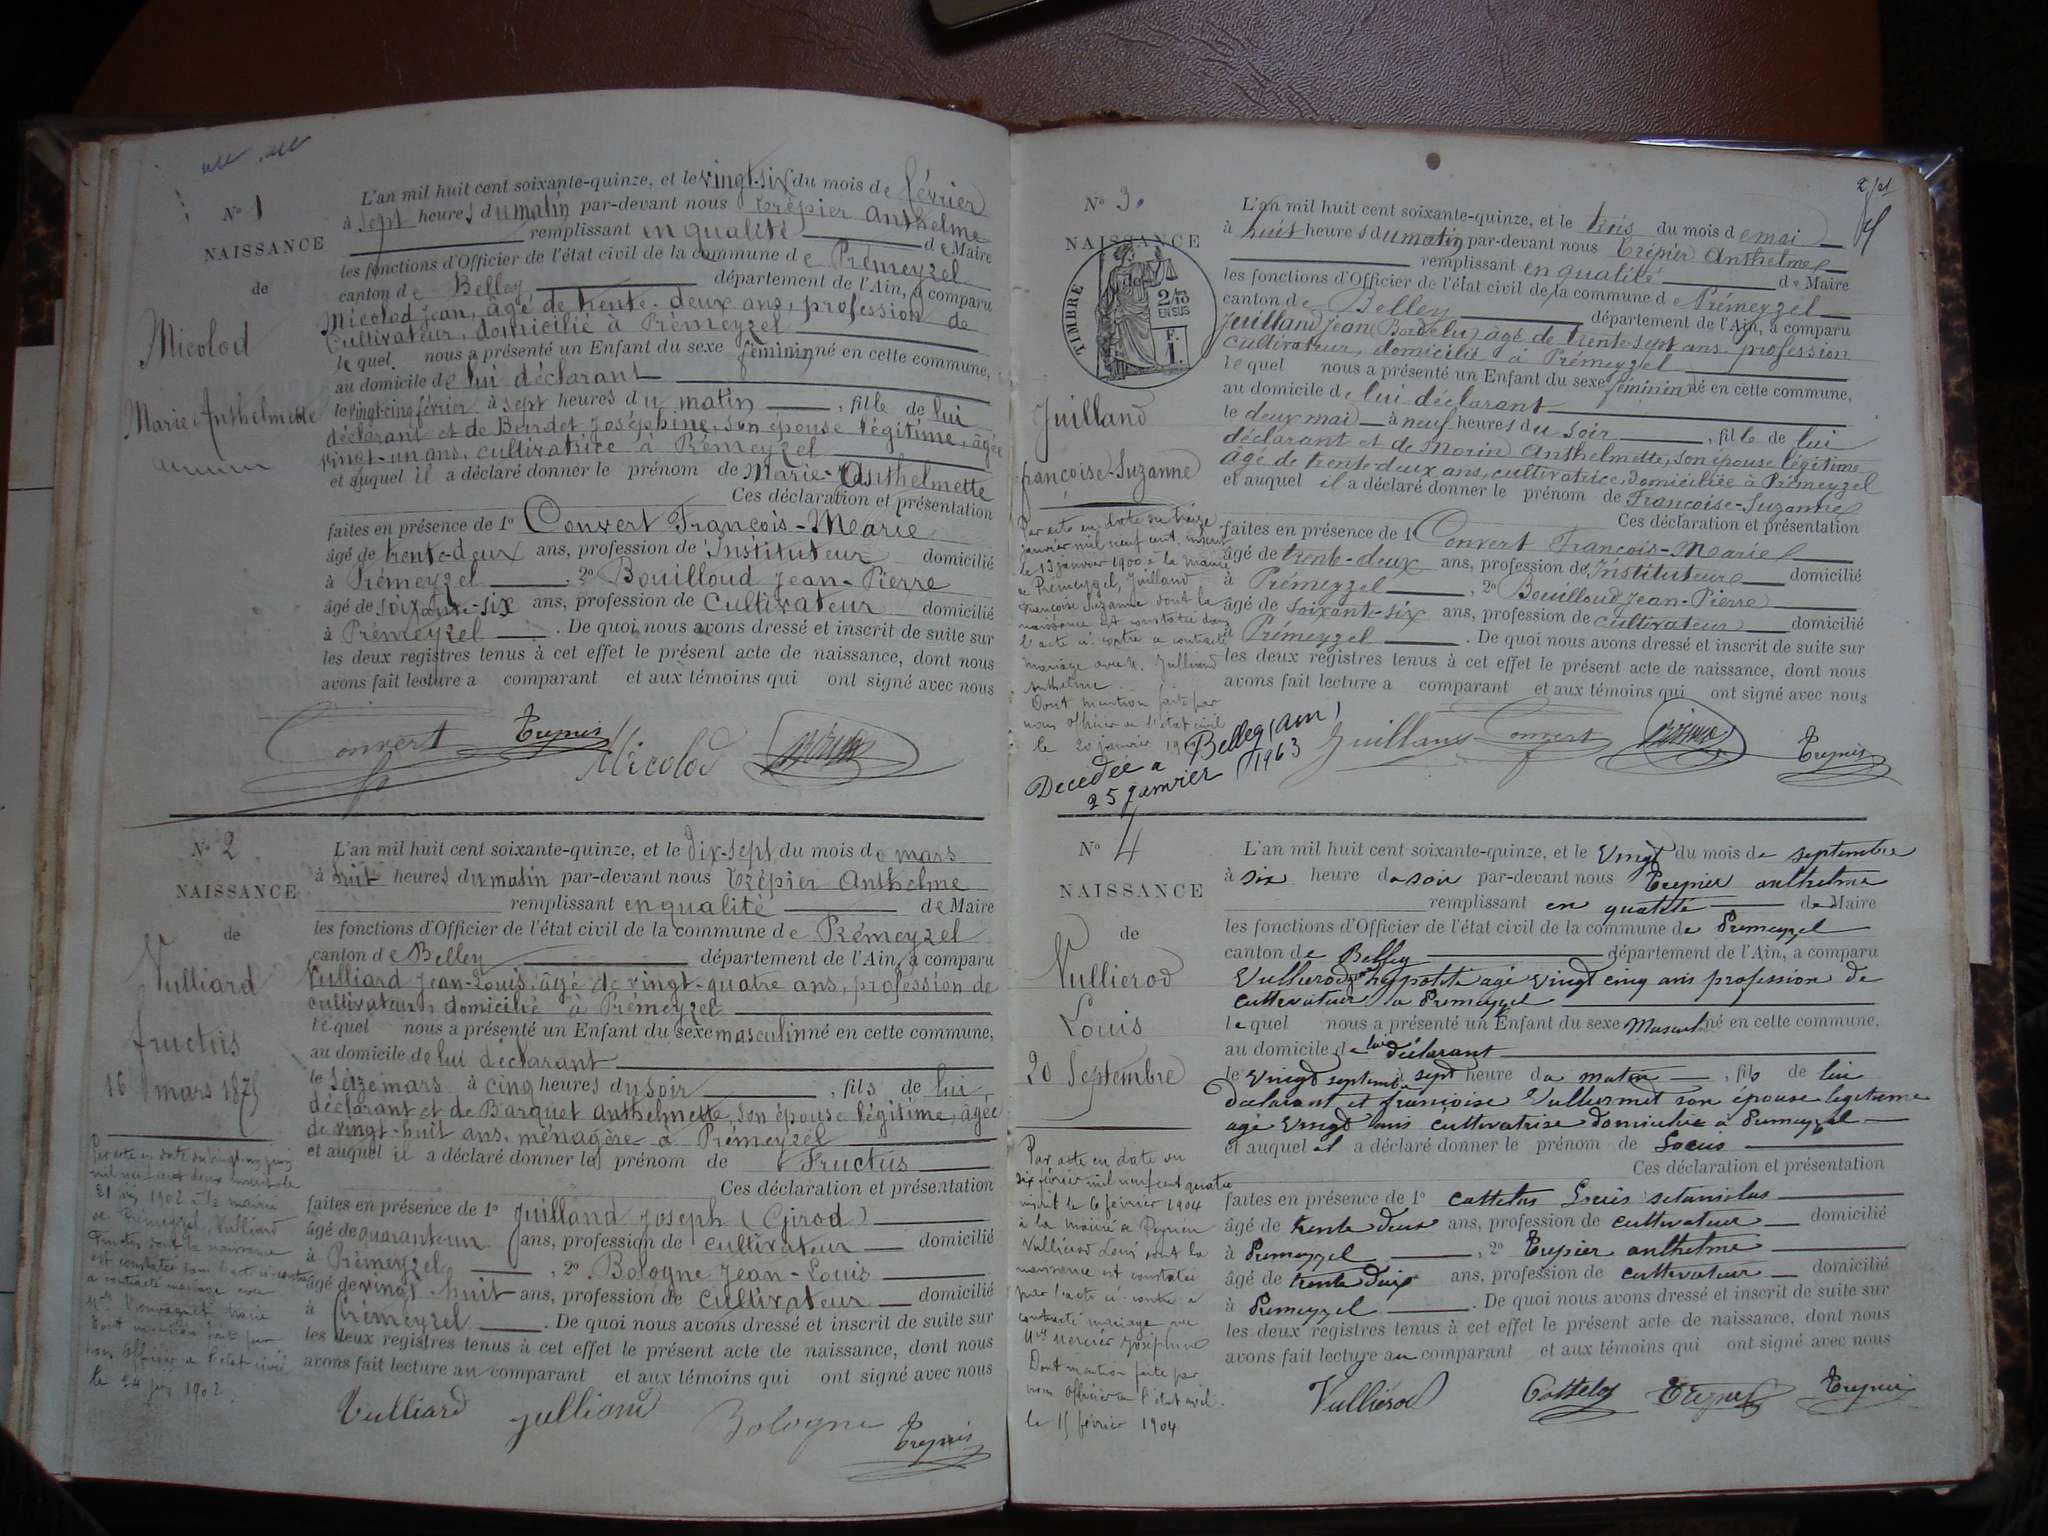 N° 1
NAISSANCE
de
Micolod
Marie Anthelmette
L'an mil huit cent soixante-quinze, et le vingt-six du mois de février
à sept heures du matin par-devant nous Trépier Anthelme
remplissant en qualité de Maire
les fonctions d'Officier de l'état civil de la commune de Prémeyzel
canton de Belley département de l'Ain, a comparu
Micolod Jean, âgé de trente-deux ans, profession de
Cultivateur, domicilié à Prémeyzel
lequel nous a présenté un Enfant du sexe féminin né en cette commune,
au domicile de lui déclarant
le vingt-cinq février à sept heures du matin, fille de lui
déclarant et de Burdet Joséphine, son épouse légitime, âgée
vingt-un ans, cultivatrice à Prémeyzel
et auquel il a déclaré donner le prénom de Marie-Anthelmette
Ces déclaration et présentation
faites en présence de 1° Convert François-Marie
âgé de trente-deux ans, profession de Instituteur domicilié
à Prémeyzel, 2° Bouilloud Jean-Pierre
âgé de soixante-six ans, profession de Cultivateur domicilié
à Prémeyzel. De quoi nous avons dressé et inscrit de suite sur
les deux registres tenus à cet effet le présent acte de naissance, dont nous
avons fait lecture a comparant et aux témoins qui ont signé avec nous
Convert Trepier Micolod
N° 2
NAISSANCE
de
Vulliard
fructus
16 mars 1875
Par acte en date du vingt-un juin
mil neuf cent deux inscrit le
21 juin 1902 à la mairie
de Prémeyzel, Vulliard
Fructus dont la naissance
est constatée dans l'acte ci-contre
a contracté mariage avec
Dont mention faite par
nous Officier de l'état civil
le 24 juin 1902.
L'an mil huit cent soixante-quinze, et le dix-sept du mois de mars
à huit heures du matin par-devant nous Trépier Anthelme
remplissant en qualité de Maire
les fonctions d'Officier de l'état civil de la commune de Prémeyzel
canton de Belley département de l'Ain, a comparu
Vulliard Jean-Louis, âgé de vingt-quatre ans, profession de
cultivateur, domicilié à Prémeyzel
lequel nous a présenté un Enfant du sexe masculin né en cette commune,
au domicile de lui déclarant
le seize mars à cinq heures du soir, fils de lui,
déclarant et de Barquet Anthelmette, son épouse légitime, âgée
de vingt-huit ans, ménagère à Prémeyzel
et auquel il a déclaré donner le prénom de Fructus
Ces déclaration et présentation
faites en présence de 1° Juilland Joseph (Girod)
âgé de quarante un ans, profession de cultivateur domicilié
à Prémeyzel, 2° Bologne Jean-Louis
âgé de vingt-huit ans, profession de cultivateur domicilié
à Prémeyzel. De quoi nous avons dressé et inscrit de suite sur
les deux registres tenus à cet effet le présent acte de naissance, dont nous
avons fait lecture au comparant et aux témoins qui ont signé avec nous
Vulliard Julliand Bologne Trepier
N° 3.
NAISSANCE
TIMBRE
2/10
EN SUS
F.
1.
Juilland
françoise-Suzanne
Par acte en date du treize
janvier mil neuf cent, inscrit
le 13 janvier 1900 à la mairie
de Prémeyzel, Juilland
Françoise Suzanne dont la
naissance est constatée dans
l'acte ci-contre a contracté
mariage avec M. Julliand
Anthelme
Dont mention faite par
nous Officier de l'état civil
le 20 janvier
Decedée a Belley (Ain)
25 janvier 1963
L'an mil huit cent soixante-quinze, et le trois du mois de mai
à huit heures du matin par-devant nous Trépier Anthelme
remplissant en qualité de Maire
les fonctions d'Officier de l'état civil de la commune de Prémeyzel
canton de Belley département de l'Ain, a comparu
Juilland Jean (Bordelu) âgé de trente-sept ans profession
cultivateur, domicilié à Prémeyzel
lequel nous a présenté un Enfant du sexe féminin né en cette commune,
au domicile de lui déclarant
le deux mai à neuf heures du soir, fille de lui
déclarant et de Morin Anthelmette, son épouse légitime
âgé de trente-deux ans, cultivatrice, domiciliée à Prémeyzel
et auquel il a déclaré donner le prénom de Françoise-Suzanne
Ces déclaration et présentation
faites en présence de 1° Convert François-Marie
âgé de trente-deux ans, profession de Instituteur domicilié
à Prémeyzel, 2° Bouilloud Jean-Pierre
âgé de soixant-six ans, profession de cultivateur domicilié
à Prémeyzel. De quoi nous avons dressé et inscrit de suite sur
les deux registres tenus à cet effet le présent acte de naissance, dont nous
avons fait lecture a comparant et aux témoins qui ont signé avec nous
Juilland Convert Trepier
N° 4
NAISSANCE
de
Vullierod
Louis
20 Septembre
Par acte en date du
six février mil neuf cent quatre
inscrit le 6 février 1904
à la mairie de Peyrieu
Vullierod Louis dont la
naissance est constatée
par l'acte ci-contre a
contracté mariage avec
Mlle Mercier Joséphine
Dont mention faite par
nous Officier de l'état civil.
le 15 février 1904
L'an mil huit cent soixante-quinze, et le vingt du mois de septembre
à six heure du soir par-devant nous Trepier anthelme
remplissant en qualité de Maire
les fonctions d'Officier de l'état civil de la commune de Premeyzel
canton de Belley département de l'Ain, a comparu
Vullierod hyppolite agé vingt cinq ans profession de
cultivateur a Premeyzel
lequel nous a présenté un Enfant du sexe Mascul né en cette commune,
au domicile de lui déclarant
le vingt septembre sept heure du matin, fils de lui
declarant et françoise Vullermet son épouse legitime
agé vingt ans cultivatrise domiciliée a Premeyzel
et auquel il a déclaré donner le prénom de Louis
Ces déclaration et présentation
faites en présence de 1° Cattelas Louis
âgé de trente deux ans, profession de cultivateur domicilié
à Premeyzel, 2° Trepier anthelme
âgé de trente deux ans, profession de cultivateur domicilié
à Premeyzel. De quoi nous avons dressé et inscrit de suite sur
les deux registres tenus à cet effet le présent acte de naissance, dont nous
avons fait lecture au comparant et aux témoins qui ont signé avec nous
Vullierod Trepier Trepier